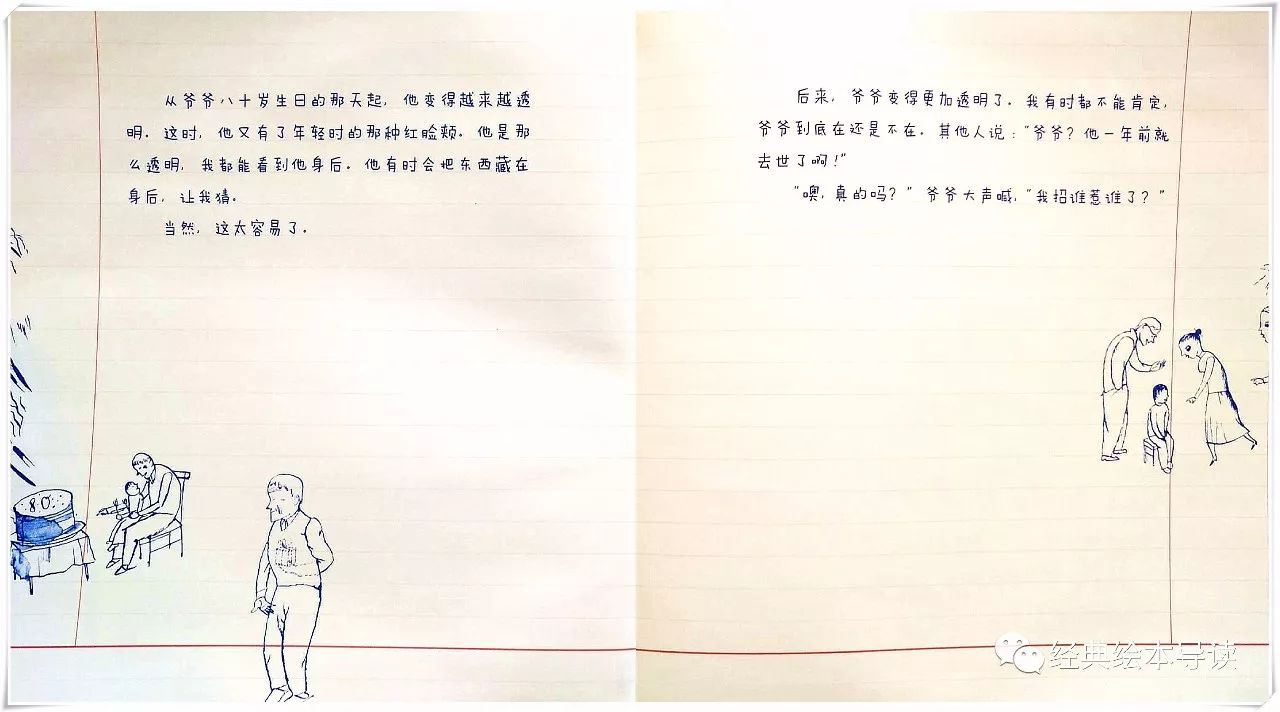 从爷爷八十岁生日的那天起，他变得越来越透
明。这时，他又有了年轻时的那种红脸颊。他是那
么透明，我都能看到他身后。他有时会把东西藏在
身后，让我猜。
当然，这太容易了。
8.0.
后来，爷爷变得更加透明了。我有时都不能肯定，
爷爷到底在还是不在。其他人说：“爷爷？他一年前就
去世了啊！”
“噢，真的吗？”爷爷大声喊，“我招谁惹谁了？”
经典绘本导读